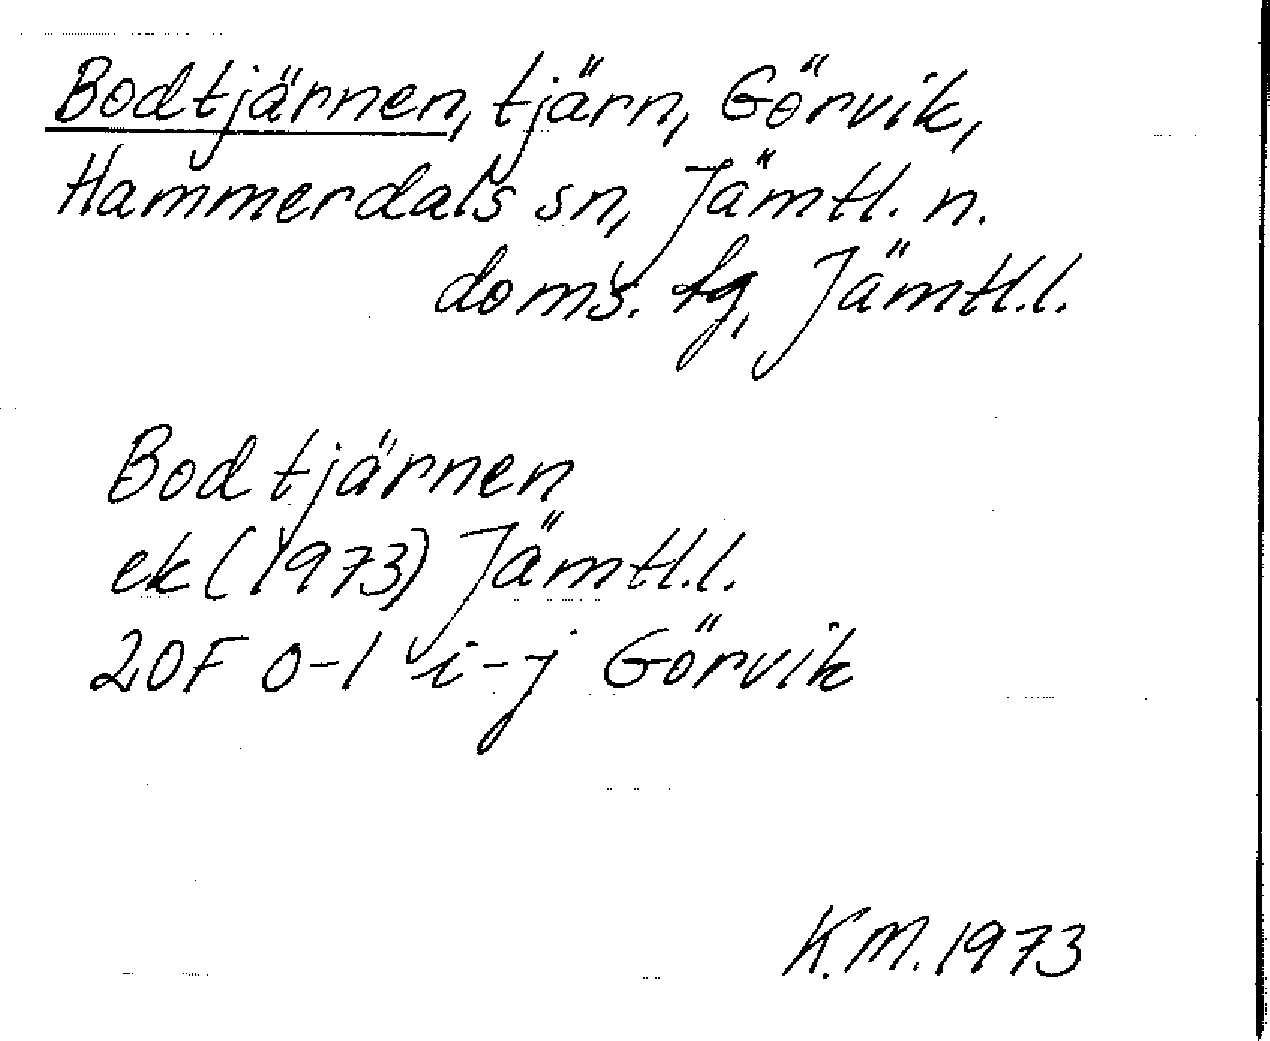 Bodtjärnen, tjärn, Görvik,
Hammerdals sn, Jämtl. n.
doms. fg, Jämtl.l.
Bodtjärnen
ek (1973) Jämtl.l.
20F 0-1 i-j Görvik
K.M. 1973